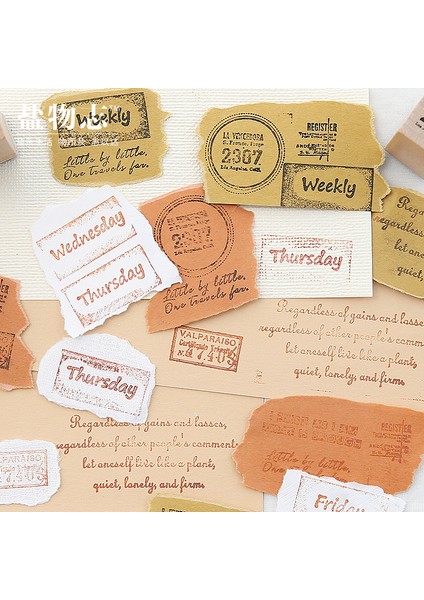 盐物志
Weekly
Little by little,
One travels far.
LA VENCEDORA
S. Franco. Prop.
2307
Los Angeles, Calif.
REGISTER
Weekly
Regardless
regardless of
let oneself
quiet,
Wednesday
Thursday
Little by little,
One travels far.
Thursday
VALPARAISO
Thursday
Regardless of gains and losses,
regardless of other people's comme
let oneself live like a plant,
quiet, lonely, and firm.
Regardless of gains and losses,
regardless of other people's comment
let oneself live like a plant,
quiet, lonely, and firm.
REGISTER
Little by little,
One travels far.
VALPARAISO
Friday